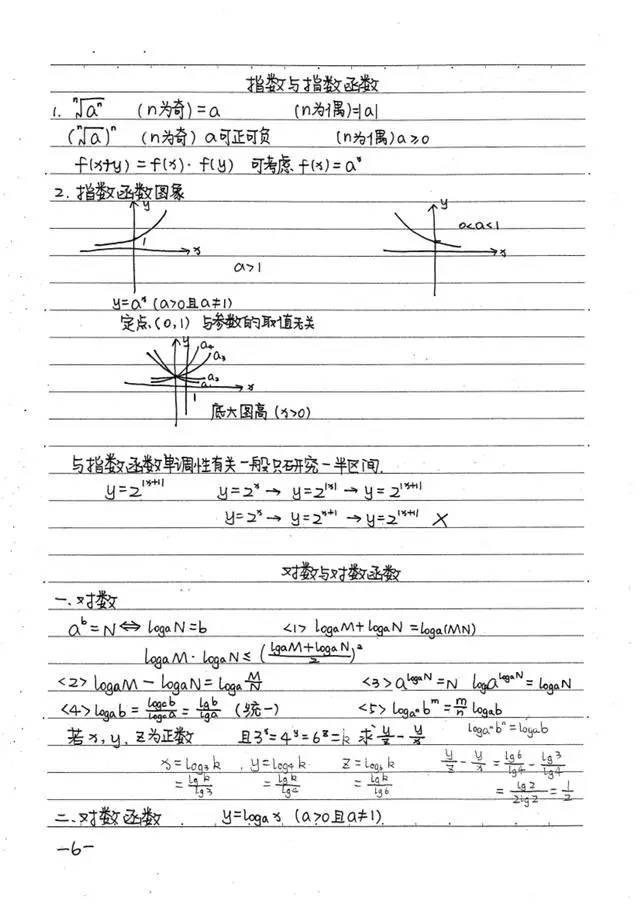 指数与指数函数
1. ⁿ√aⁿ (n为奇)=a (n为偶)=|a|
(ⁿ√a)ⁿ (n为奇) a可正可负 (n为偶) a≥0
f(x+y)=f(x)·f(y) 可考虑 f(x)=aˣ
2. 指数函数图象
y y
1 x 0<a<1 x
a>1
y=aˣ (a>0且a≠1)
定点(0,1) 与参数的取值无关
y a₄ a₃
a₂ a₁ x
1
底大图高(x>0)
与指数函数单调性有关一般只研究一半区间.
y=2^|x+1| y=2^x → y=2^|x| → y=2^|x+1|
y=2^x → y=2^(x+1) → y=2^|x+1| ×
对数与对数函数
一. 对数
a^b=N⇔logaN=b <1> logaM+logaN=loga(MN)
logaM·logaN≤((lgaM+logaN)/2)²
<2> logaM-logaN=loga M/N <3> a^logaN=N loga^logaN=logaN
<4> logab=logcb/logca=lgb/lga (统一) <5> logaⁿb^m=m/n logab
logaⁿbⁿ=logab
若x,y,z为正数 且3^x=4^y=6^z=k 求 y/z-y/x
x=log₃k, y=log₄k z=log₆k y/z-y/x=lg6/lg4-lg3/lg4
=lgk/lg3 =lgk/lg4 =lgk/lg6 =lg2/2lg2=1/2
二. 对数函数 y=logax (a>0且a≠1)
-6-